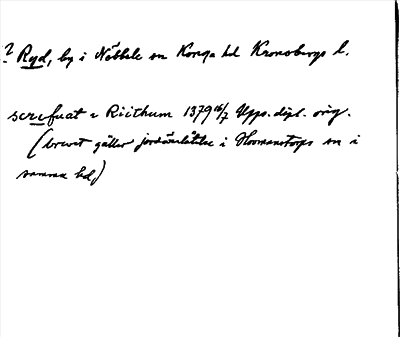 ? Ryd, by i Nöbbele sn Konga hd Kronobergs l.
screfuat i Riithum 1379 16/7 Upps. dipl. orig.
(brevet gäller jordöverlåtelse i Hormanstorps sn i
samma hd.)